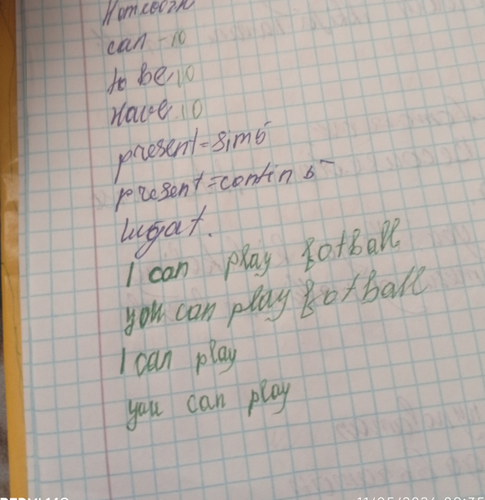 can - 10
to be 10
Have 10
present = simb
present = contin 5
lugat.
I can play fotball
you can play fotball
I can play
you can play